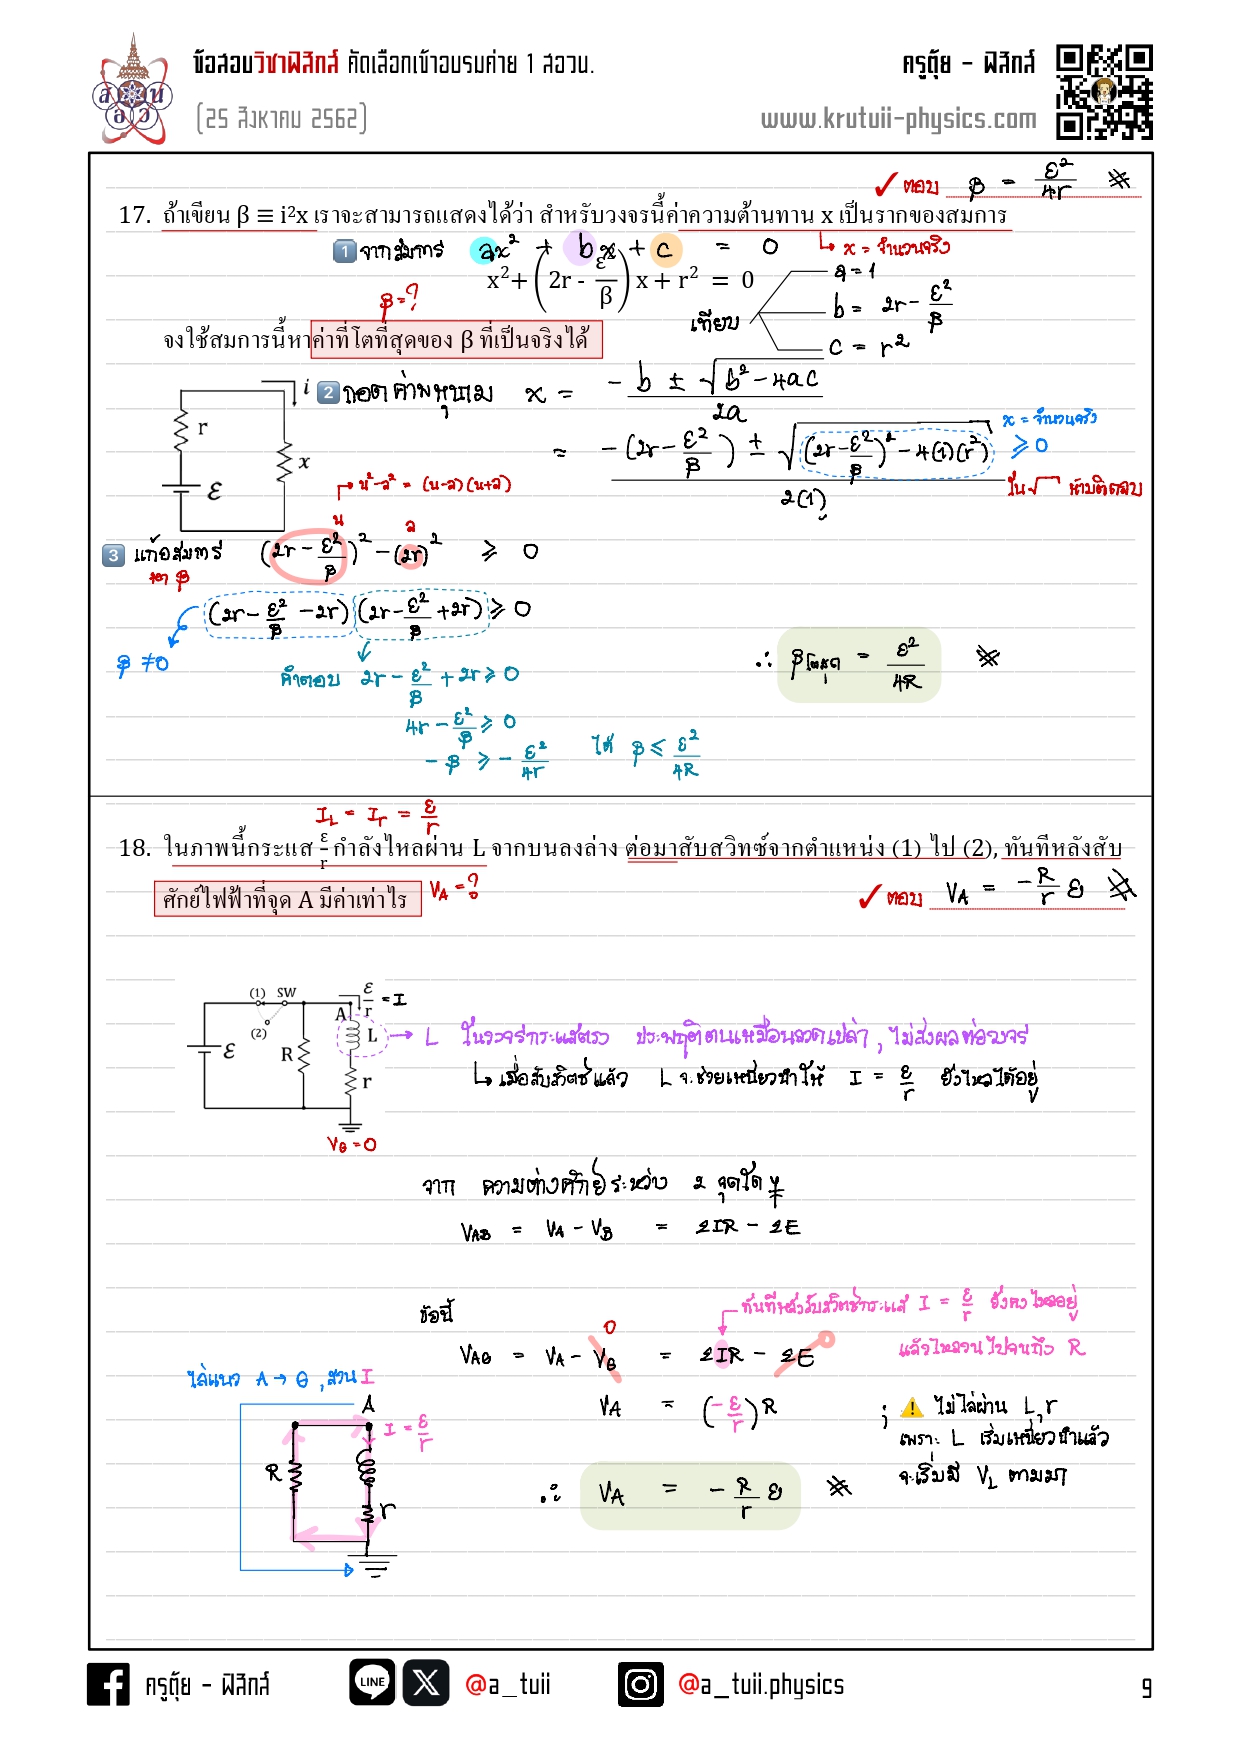 ข้อสอบวิชาฟิสิกส์ คัดเลือกเข้าอบรมค่าย 1 สอวน.
(25 สิงหาคม 2562)
ครูตุ้ย - ฟิสิกส์
www.krutuii-physics.com
✓ ตอบ β = ε²/4r
17. ถ้าเขียน β ≡ i²x เราจะสามารถแสดงได้ว่า สำหรับวงจรนี้ค่าความต้านทาน x เป็นรากของสมการ
1 จากสมการ ax² + bx + c = 0
↳ x = จำนวนจริง
x² + (2r - ε²/β) x + r² = 0
β = ?
เทียบ
a = 1
b = 2r - ε²/β
c = r²
จงใช้สมการนี้หาค่าที่โตที่สุดของ β ที่เป็นจริงได้
i
r
x
ε
2 ถอดค่าพหุนาม x = (-b ± √(b² - 4ac))/2a
= (-(2r - ε²/β) ± √((2r - ε²/β)² - 4(1)(r²)))/2(1)
x = จำนวนจริง
≥ 0
ใน √ ห้ามติดลบ
น² - ล² = (น-ล)(น+ล)
น ล
3 แก้อสมการ (2r - ε²/β)² - (2r)² ≥ 0
หา β
(2r - ε²/β - 2r)(2r - ε²/β + 2r) ≥ 0
β ≠ 0
คำตอบ 2r - ε²/β + 2r ≥ 0
4r - ε²/β ≥ 0
-β ≥ - ε²/4r ได้ β ≤ ε²/4R
∴ βโตสุด = ε²/4R
I_L = I_r = ε/r
18. ในภาพนี้กระแส ε/r กำลังไหลผ่าน L จากบนลงล่าง ต่อมาสับสวิทซ์จากตำแหน่ง (1) ไป (2), ทันทีหลังสับ
ศักย์ไฟฟ้าที่จุด A มีค่าเท่าไร V_A = ?
✓ ตอบ V_A = -R/r ε
(1) SW
(2)
ε
R
A
ε/r = I
L
r
V_G = 0
L ในวงจรกระแสตรง ประพฤติตนเหมือนลวดเปล่า, ไม่ส่งผลต่อวงจร
↳ เมื่อสับสวิตซ์แล้ว L จะช่วยเหนี่ยวนำให้ I = ε/r ยังไหลได้อยู่
จาก ความต่างศักย์ระหว่าง 2 จุดใดๆ
V_AB = V_A - V_B = ΣIR - ΣE
ข้อนี้
ทันทีหลังสับสวิตซ์กระแส I = ε/r ยังคงไหลอยู่
แล้วไหลวนไปจนถึง R
0
V_AG = V_A - V_G = ΣIR - ΣE
V_A = (-ε/r)R
; ⚠ ไม่ไล่ผ่าน L, r
เพราะ L เริ่มเหนี่ยวนำแล้ว
จะเริ่มมี V_L ตามมา
∴ V_A = -R/r ε
ไล่แนว A → G, สวน I
A
I = ε/r
R
r
ครูตุ้ย - ฟิสิกส์
LINE
X
@a_tuii
@a_tuii.physics
9